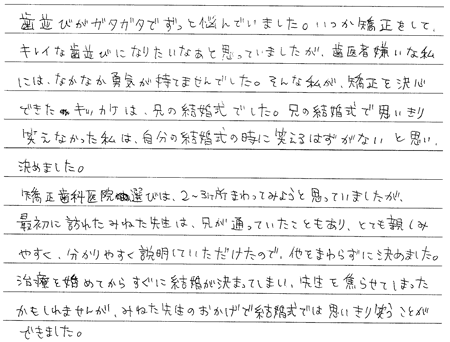 歯並びがガタガタでずっと悩んでいました。いつか矯正をして、
キレイな歯並びになりたいなあと思っていましたが、歯医者嫌いな私
には、なかなか勇気が持てませんでした。そんな私が、矯正を決心
できたキッカケは、兄の結婚式でした。兄の結婚式で思いきり
笑えなかった私は、自分の結婚式の時に笑えるはずがないと思い、
決めました。
矯正歯科医院選びは、2～3ヶ所まわってみようと思っていましたが、
最初に訪れたみねた先生は、兄が通っていたこともあり、とても親しみ
やすく、分かりやすく説明していただけたので、他をまわらずに決めました。
治療を始めてからすぐに結婚が決まってしまい、先生を焦らせてしまった
かもしれませんが、みねた先生のおかげで結婚式では思いきり笑うことが
できました。